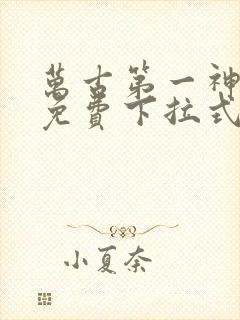 萬古第一神
免費下拉式
小夏奈